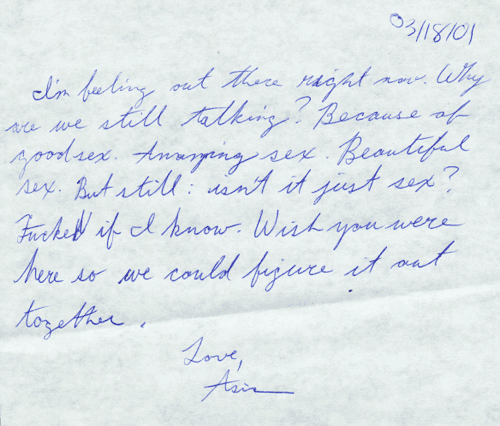 03/18/01
I'm feeling out there right now. Why
are we still talking? Because of
good sex. Amazing sex. Beautiful
sex. But still: isn't it just sex?
Fucked if I know. Wish you were
here so we could figure it out
together.
Love,